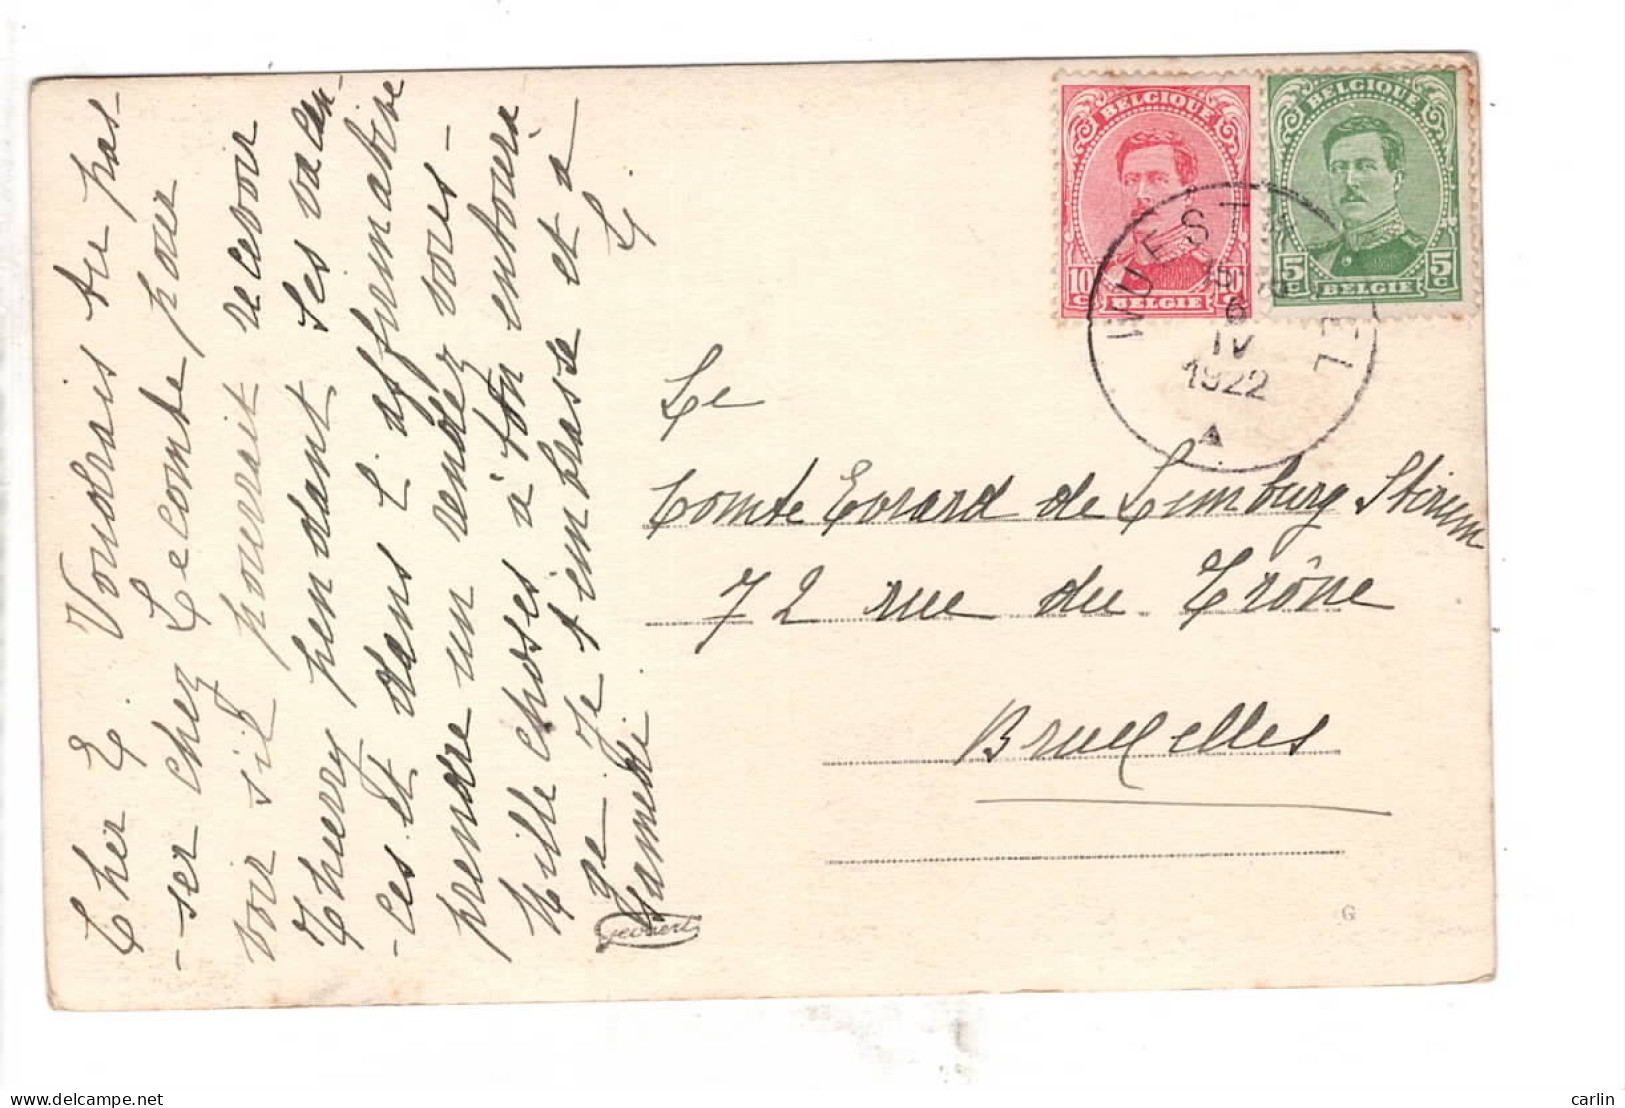 Cher E. Voudrais tu pas-
-ser chez Lecomte pour
voir s'il pourrait recevoir
Thierry pendant ses vacan-
-ces. Et dans l'affirmative
prendre un rendez vous-
Mille choses à ton entourage
Je t'embrasse et à
Samedi
BELGIQUE
10 C
BELGIE
BELGIQUE
5 C 5 C
BELGIE
WUESTWEZEL
15
6
IV
1922
A
Le
Comte Evrard de Limburg Stirum
72 rue du Trône
Bruxelles
Gevaert
G
carlin